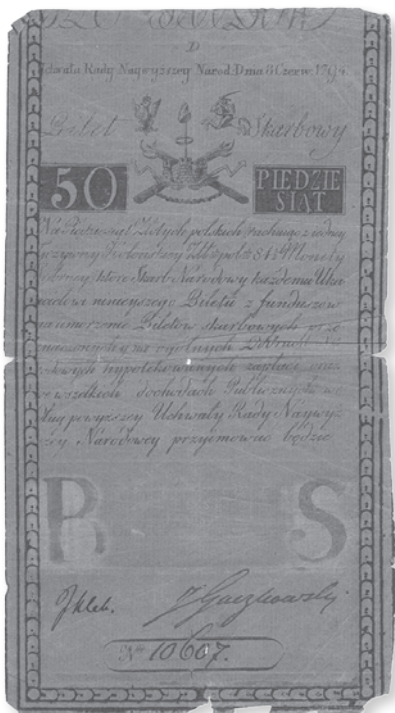 D
Uchwała Rady Naywyższey Narod: Dnia 8 Czerw. 1794.
Bilet Skarbowy
50 PIEDZIE
SIĄT
Na Piędziesiąt Złotych polskich rachując z iedney
Grzywny Kolonskiey Złt: polsk: 84½ Monety
srebrney, ktore Skarb Narodowy każdemu Uka-
zicielowi ninieyszego Biletu z funduszow
na umorzenie Biletow skarbowych prze
znaczonych y na ogolnych Dobrach
hypotekowanych zapłaci oraz
we wszelkich dochodach Publicznych we
dług powyższey Uchwały Rady Naywyż
szey Narodowey przyimować będzie
B S
J Klek. J Gaczkowski
Nº 10607.